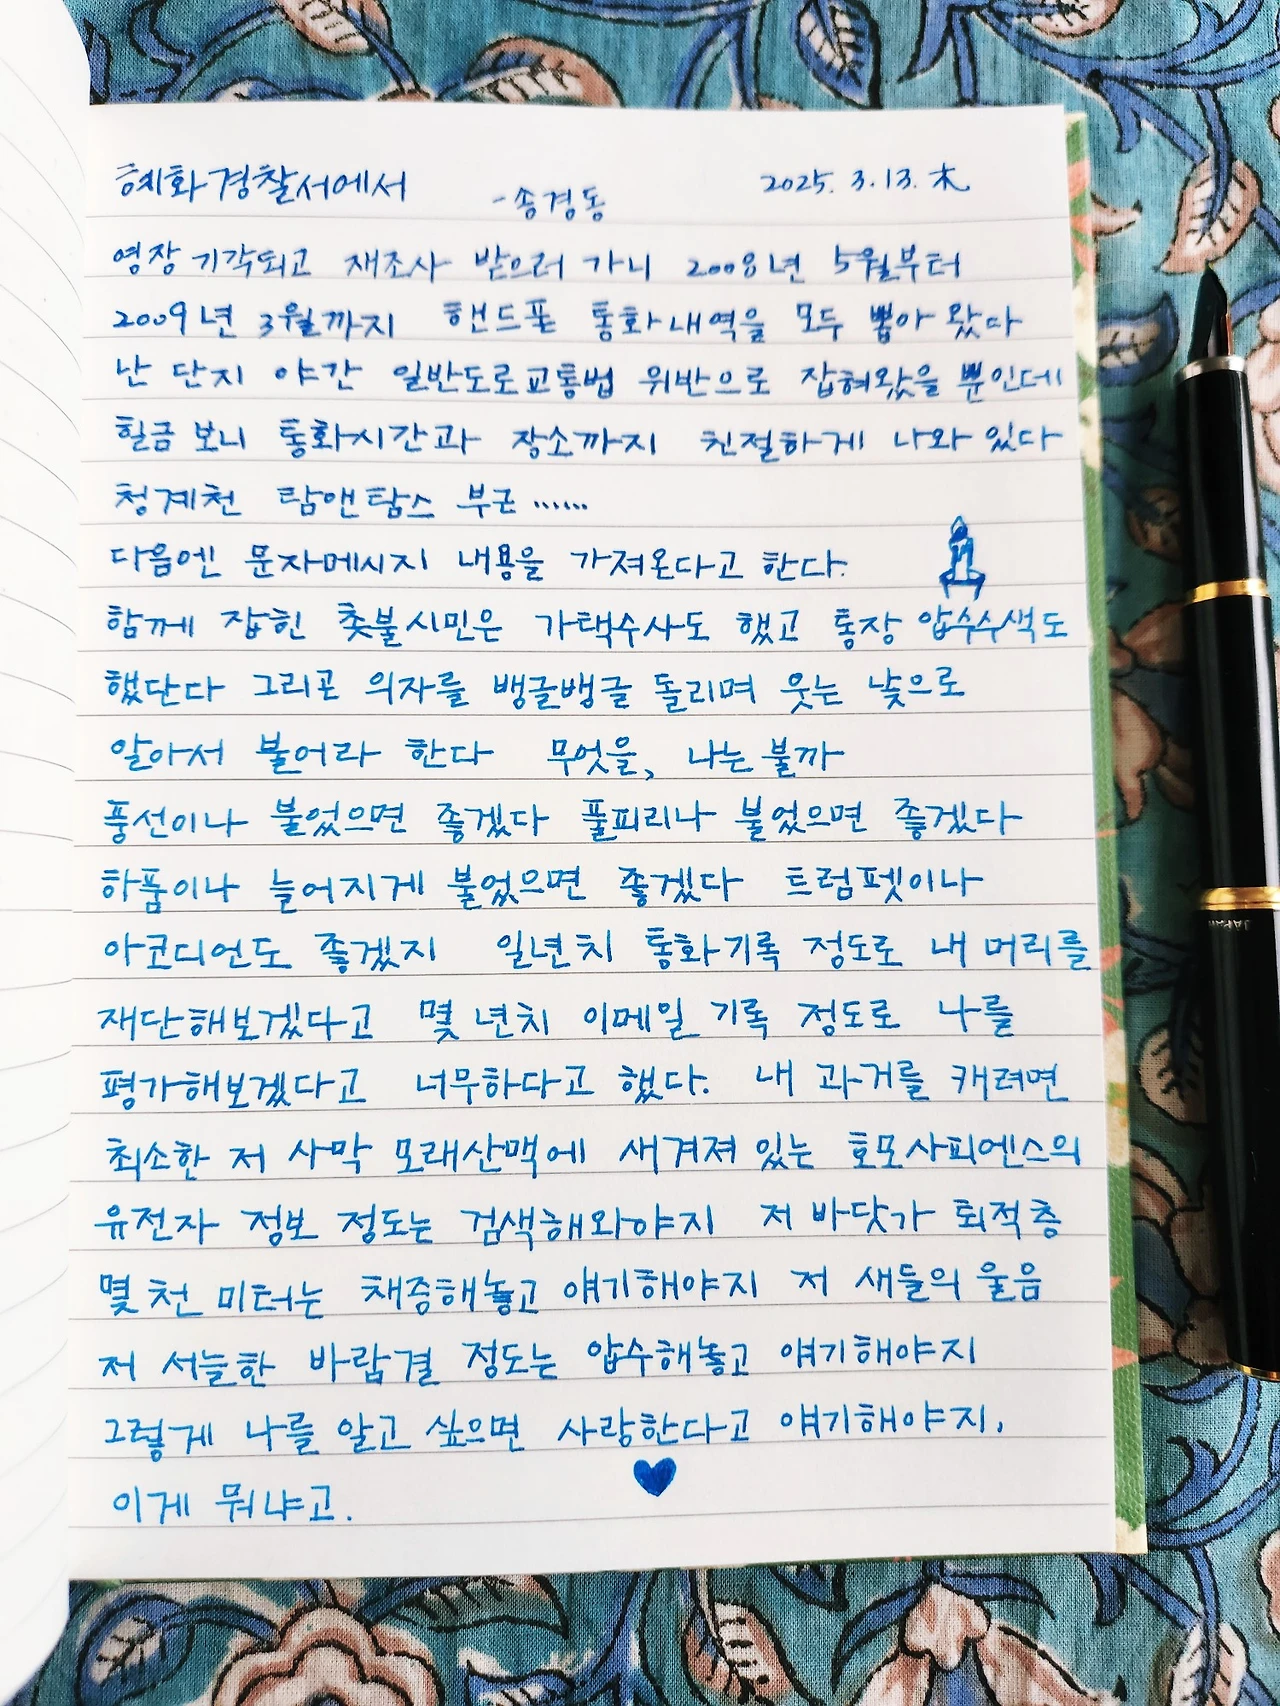 혜화경찰서에서
-송경동
2025. 3.13. 木
영장 기각되고 재조사 받으러 가니 2008년 5월부터
2009년 3월까지 핸드폰 통화내역을 모두 뽑아 왔다
난 단지 야간 일반도로교통법 위반으로 잡혀왔을 뿐인데
힐금 보니 통화시간과 장소까지 친절하게 나와 있다
청계천 탐앤탐스 부근 ......
다음엔 문자메시지 내용을 가져온다고 한다.
함께 잡힌 촛불시민은 가택수사도 했고 통장 압수수색도
했단다 그리곤 의자를 뱅글뱅글 돌리며 웃는 낯으로
알아서 불어라 한다 무엇을, 나는 불까
풍선이나 불었으면 좋겠다 풀피리나 불었으면 좋겠다
하품이나 늘어지게 불었으면 좋겠다 트럼펫이나
아코디언도 좋겠지 일년치 통화기록 정도로 내 머리를
재단해보겠다고 몇 년치 이메일 기록 정도로 나를
평가해보겠다고 너무하다고 했다. 내 과거를 캐려면
최소한 저 사막 모래산맥에 새겨져 있는 호모사피엔스의
유전자 정보 정도는 검색해와야지 저 바닷가 퇴적층
몇 천 미터는 채증해놓고 얘기해야지 저 새들의 울음
저 서늘한 바람결 정도는 압수해놓고 얘기해야지
그렇게 나를 알고 싶으면 사랑한다고 얘기해야지,
이게 뭐냐고.
JAPAN